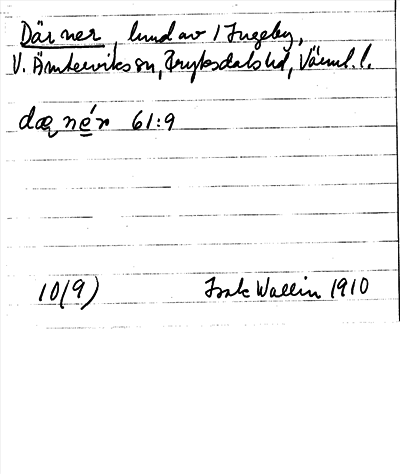 Därner, lund av 1 Ingeby,
V. Ämterviks sn, Fryksdals hd, Värml. l.
dæ nér 61:9
10(9) Isak Wallin 1910